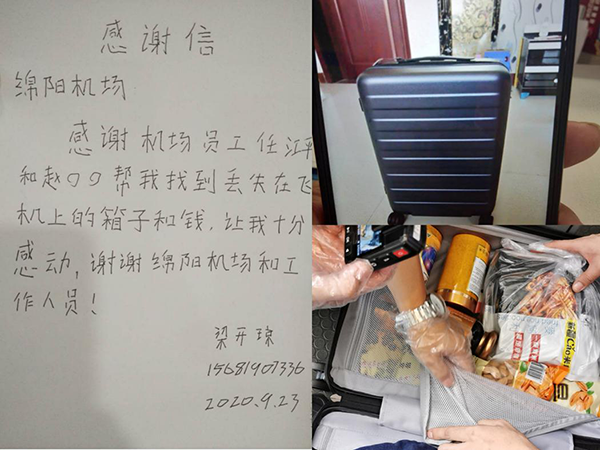 感谢信
绵阳机场
感谢机场员工任江平
和赵○○帮我找到丢失在飞
机上的箱子和钱,让我十分
感动,谢谢绵阳机场和工
作人员!
梁开琼
15681907336
2020.9.23